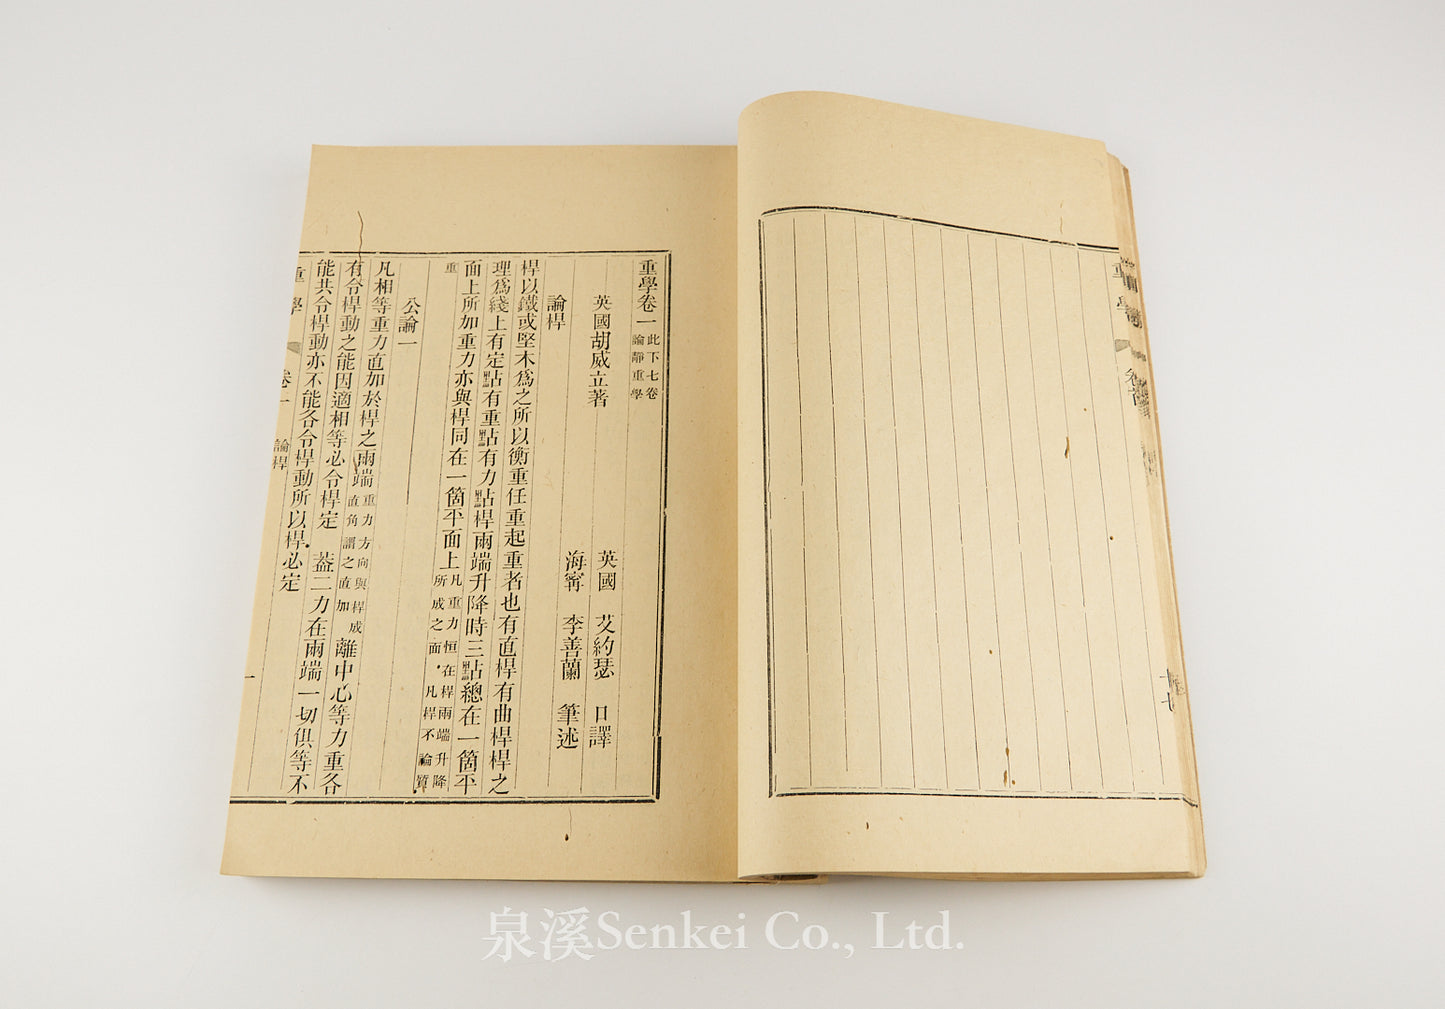 重學卷一 此下七卷論靜重學
英國胡威立著
英國 艾約瑟 口譯
海甯 李善蘭 筆述
論桿
桿以鐵或堅木爲之所以衡重任重起重者也有直桿有曲桿桿之
理爲綫上有定點有重點有力點桿兩端升降時三點總在一箇平
面上所加重力亦與桿同在一箇平面上凡重力恒在桿兩端升降所成之面凡桿不論質
重
公論一
凡相等重力直加於桿之兩端重力方向與桿成直角謂之直加離中心等力重各
有令桿動之能因適相等必令桿定 葢二力在兩端一切俱等不
能共令桿動亦不能各令桿動所以桿必定
重學 卷一 論桿 一
重學 卷首 十七
泉溪Senkei Co., Ltd.